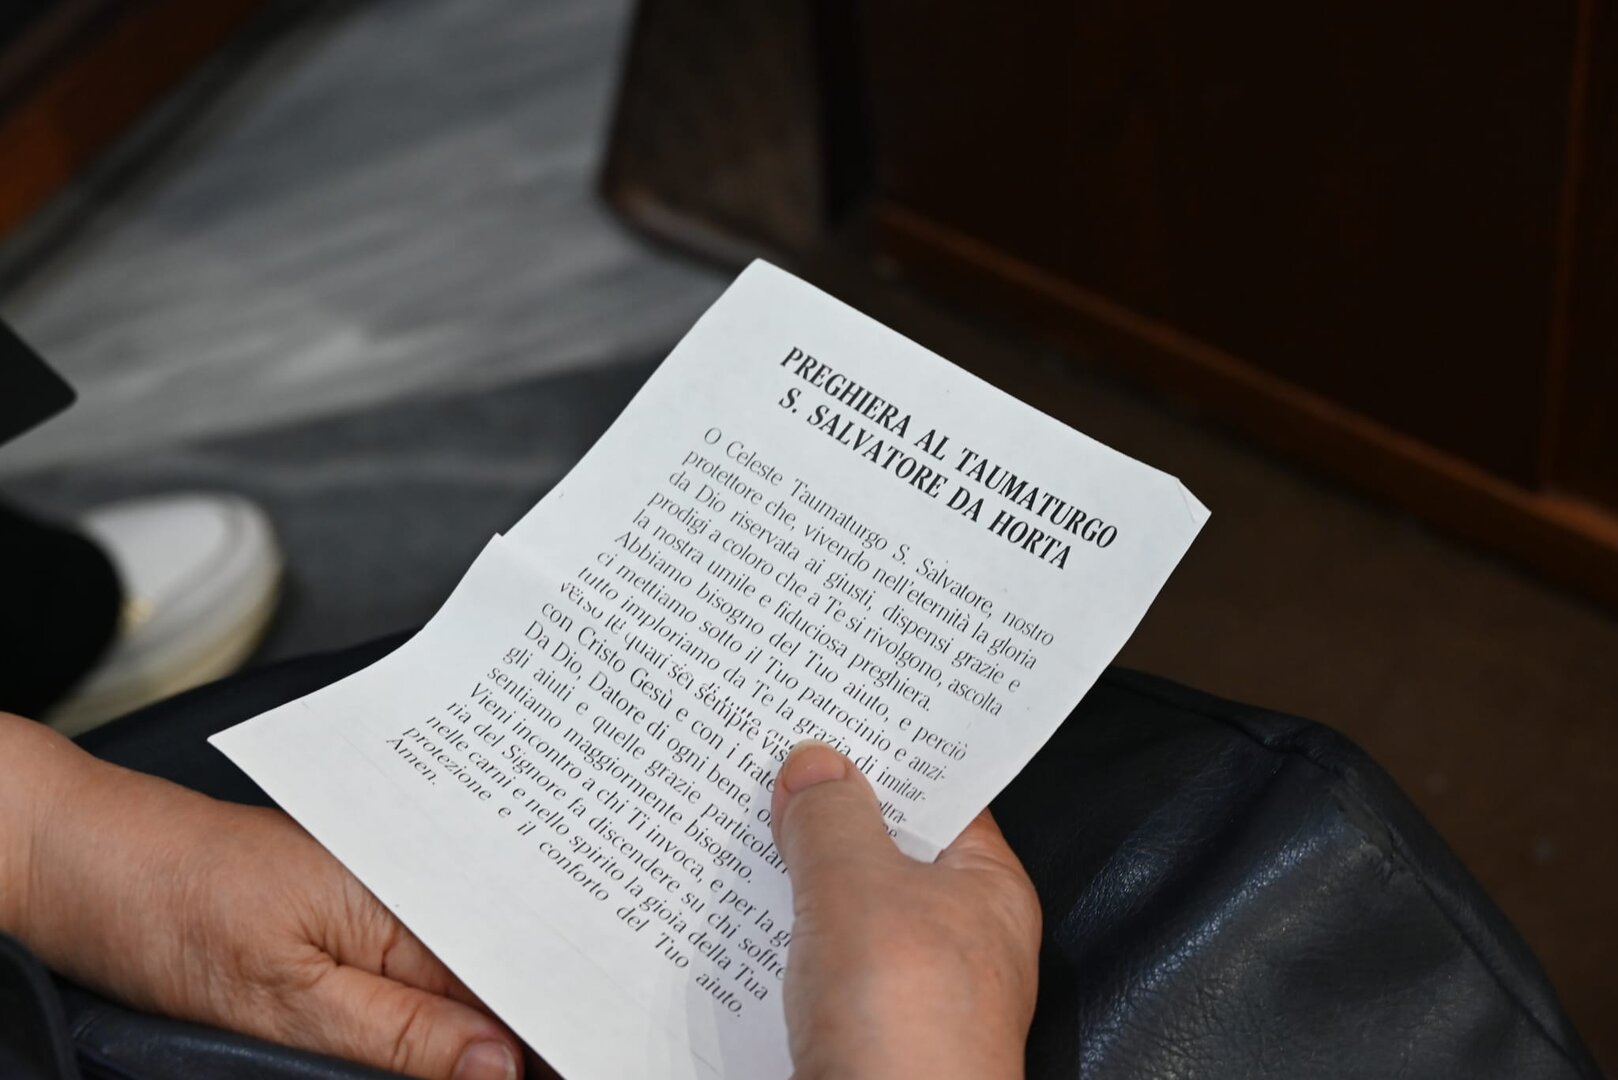 PREGHIERA AL TAUMATURGO
S. SALVATORE DA HORTA
O Celeste Taumaturgo S. Salvatore, nostro
protettore che, vivendo nell'eternità la gloria
da Dio riservata ai giusti, dispensi grazie e
prodigi a coloro che a Te si rivolgono, ascolta
la nostra umile e fiduciosa preghiera.
Abbiamo bisogno del Tuo aiuto, e perciò
ci mettiamo sotto il Tuo patrocinio e anzi-
tutto imploriamo da Te la grazia di imitar-
verso le quali sei sempre
con Cristo Gesù e con i
Da Dio, Datore di ogni bene,
gli aiuti e quelle grazie
sentiamo maggiormente bisogno.
Vieni incontro a chi Ti invoca, e per la
ria del Signore fa discendere su chi
nelle carni e nello spirito la gioia della Tua
protezione e il conforto del Tuo aiuto.
Amen.